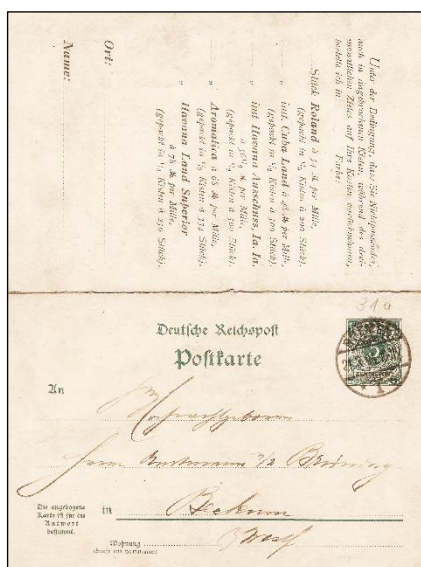 Unter der Bedingung, dass Sie Nichtpassendes,
auch in angebrochenen Kisten, während des drei-
monatlichen Zieles auf Ihre Kosten zurücknehmen,
bestelle ich in Farbe:
Stück Roland à 54 M. per Mille,
(gepackt in Kisten à 200 Stück).
" imt. Cuba Land à 48 M. per Mill.,
(gepackt in Kisten à 500 Stück).
" imt Havana Ausschuss, Ia. Ia.
M. per Mille,
(gepackt in Kisten à 500 Stück).
" Aromatica à 68 M. per Mille,
(gepackt in Kisten à Stück).
" Havana Land Superior
à 78 M. per Mille,
(gepackt in Kisten à 250 Stück).
Ort:
Name:
310
Deutsche Reichspost
Postkarte
An
Hochwohlgeboren
Herrn
in Beckum
Westf
Die angebogene
Karte ist für die
Antwort
bestimmt.
Wohnung
(Straße und Hausnummer)